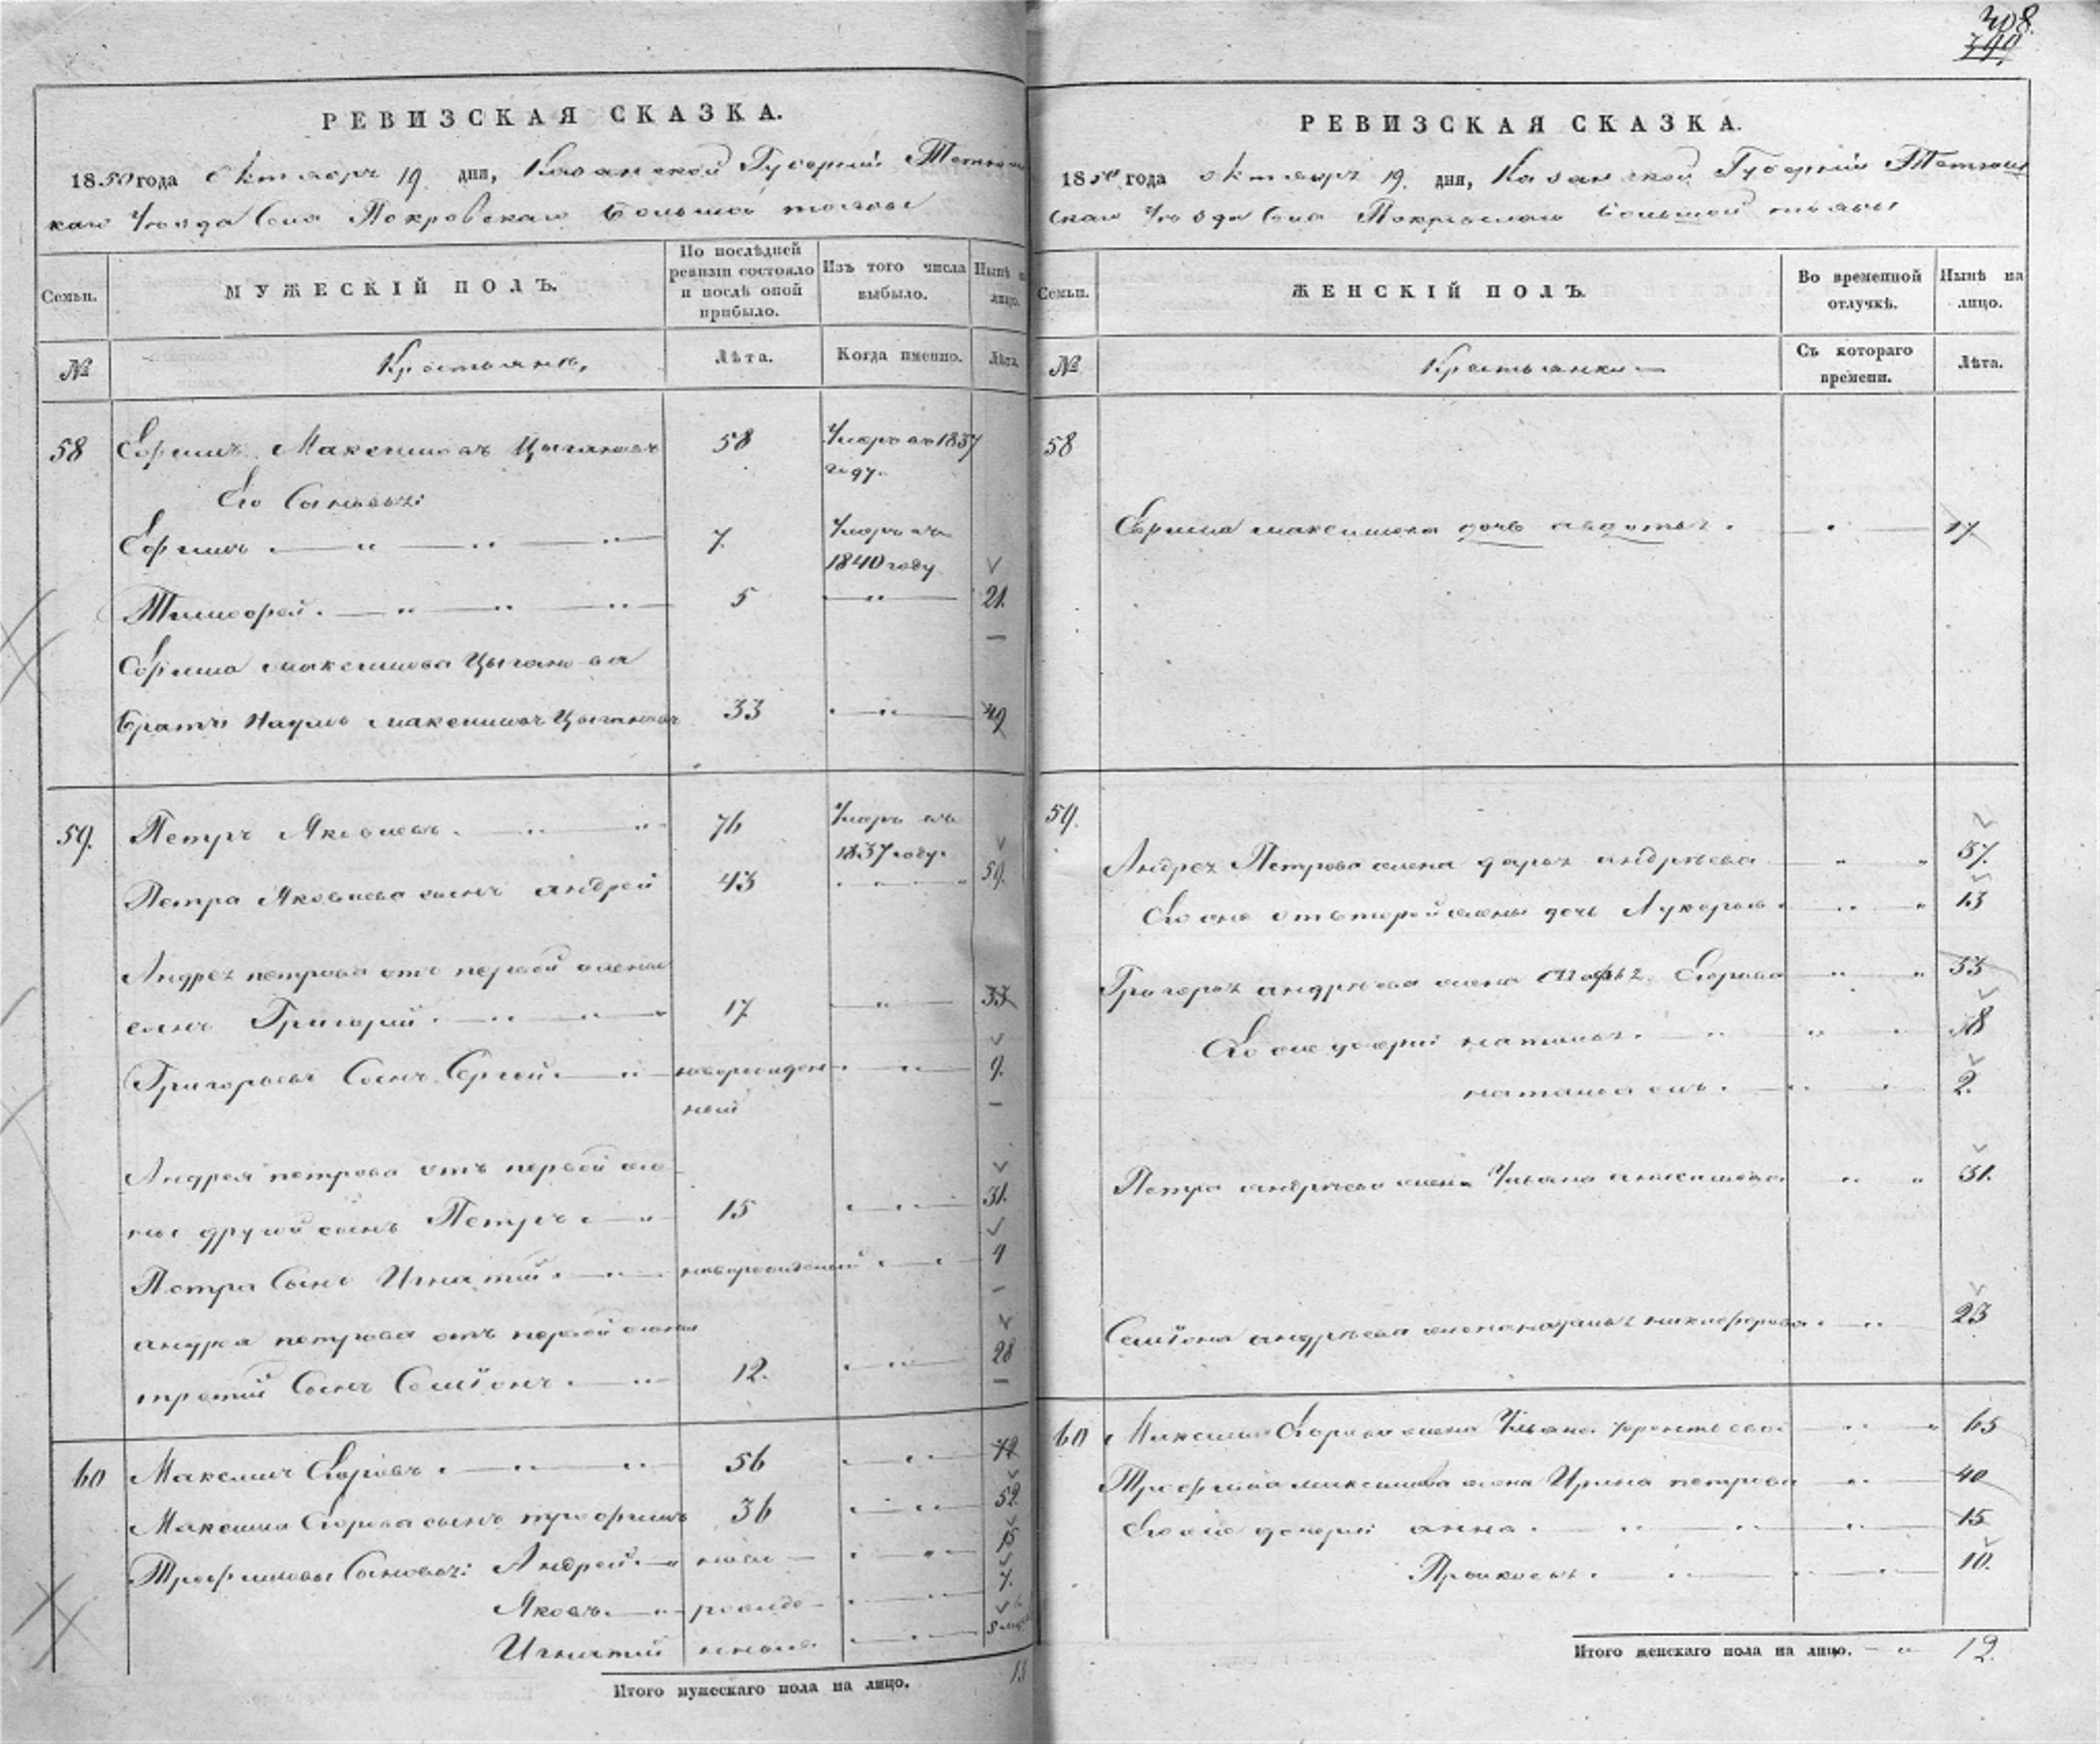 308.
РЕВИЗСКАЯ СКАЗКА.
1850 года октября 19 дня, Казанской Губернии Тетюш
каго Уезда Села Покровскаго Большой тоже
Семьи.
МУЖЕСКІЙ ПОЛЪ.
По послѣдней ревизіи состояло и послѣ оной прибыло.
Изъ того числа выбыло.
Нынѣ на лицо.
№
Крестьяне,
Лѣта.
Когда именно.
Лѣта.
58 Ефимъ Максимовъ Цыгановъ 58 Умеръ въ 1837 году.
Его Сыновья:
Ефимъ 7. Умеръ въ 1840 году
Тимофей. 5 21.
Ефима Максимова Цыганова
братъ Наумъ Максимовъ Цыгановъ 33 49
59. Петръ Яковлевъ. 76 Умеръ въ 1837 году.
Петра Яковлева сынъ андрей 43 59.
Андрея петрова отъ первой жены
сынъ Григорий. 17. 33
Григорьевъ Сынъ Сергей. новорожден 9.
ной
Андрея петрова отъ первой же
ны другой сынъ Петръ. 15 31.
Петра Сынъ Игнатий. новорожденный 4
андрея петрова отъ первой жены
третий Сынъ Семіонъ. 12. 28
60 Максимъ Егоровъ. 56 72
Максима Егорова сынъ трофимъ 36 52.
Трофимовы Сыновья: Андрей. ново 15
Яковъ. рожде 7.
Игнатий
Итого мужескаго пола на лицо. 13
РЕВИЗСКАЯ СКАЗКА.
1850 года октября 19. дня, Казанской Губерніи Тетюш
скаго Уезда Села Покровскаго Большой
Семьи.
ЖЕНСКІЙ ПОЛЪ.
Во временной отлучкѣ.
Нынѣ на лицо.
№
Крестьянки
Съ котораго времени.
Лѣта.
58
Ефима максимова дочь авдотья. 17
59.
Андрея Петрова жена дарья андреева 57.
Его же отъ второй жены дочь Лукерья 13
Григорья андреева жена Марья Егорова 33
Его же дочери наталья. 18
2.
Петра андреева жена Ульяна анисимова 31.
Семіона андреева жена никифорова. 23
60 Максима Егорова жена Ульяна терентьева. 65
Трофима максимова жена Ирина петрова 40
Его же дочери анна. 15
Просковья. 10.
Итого женскаго пола на лицо. 12.